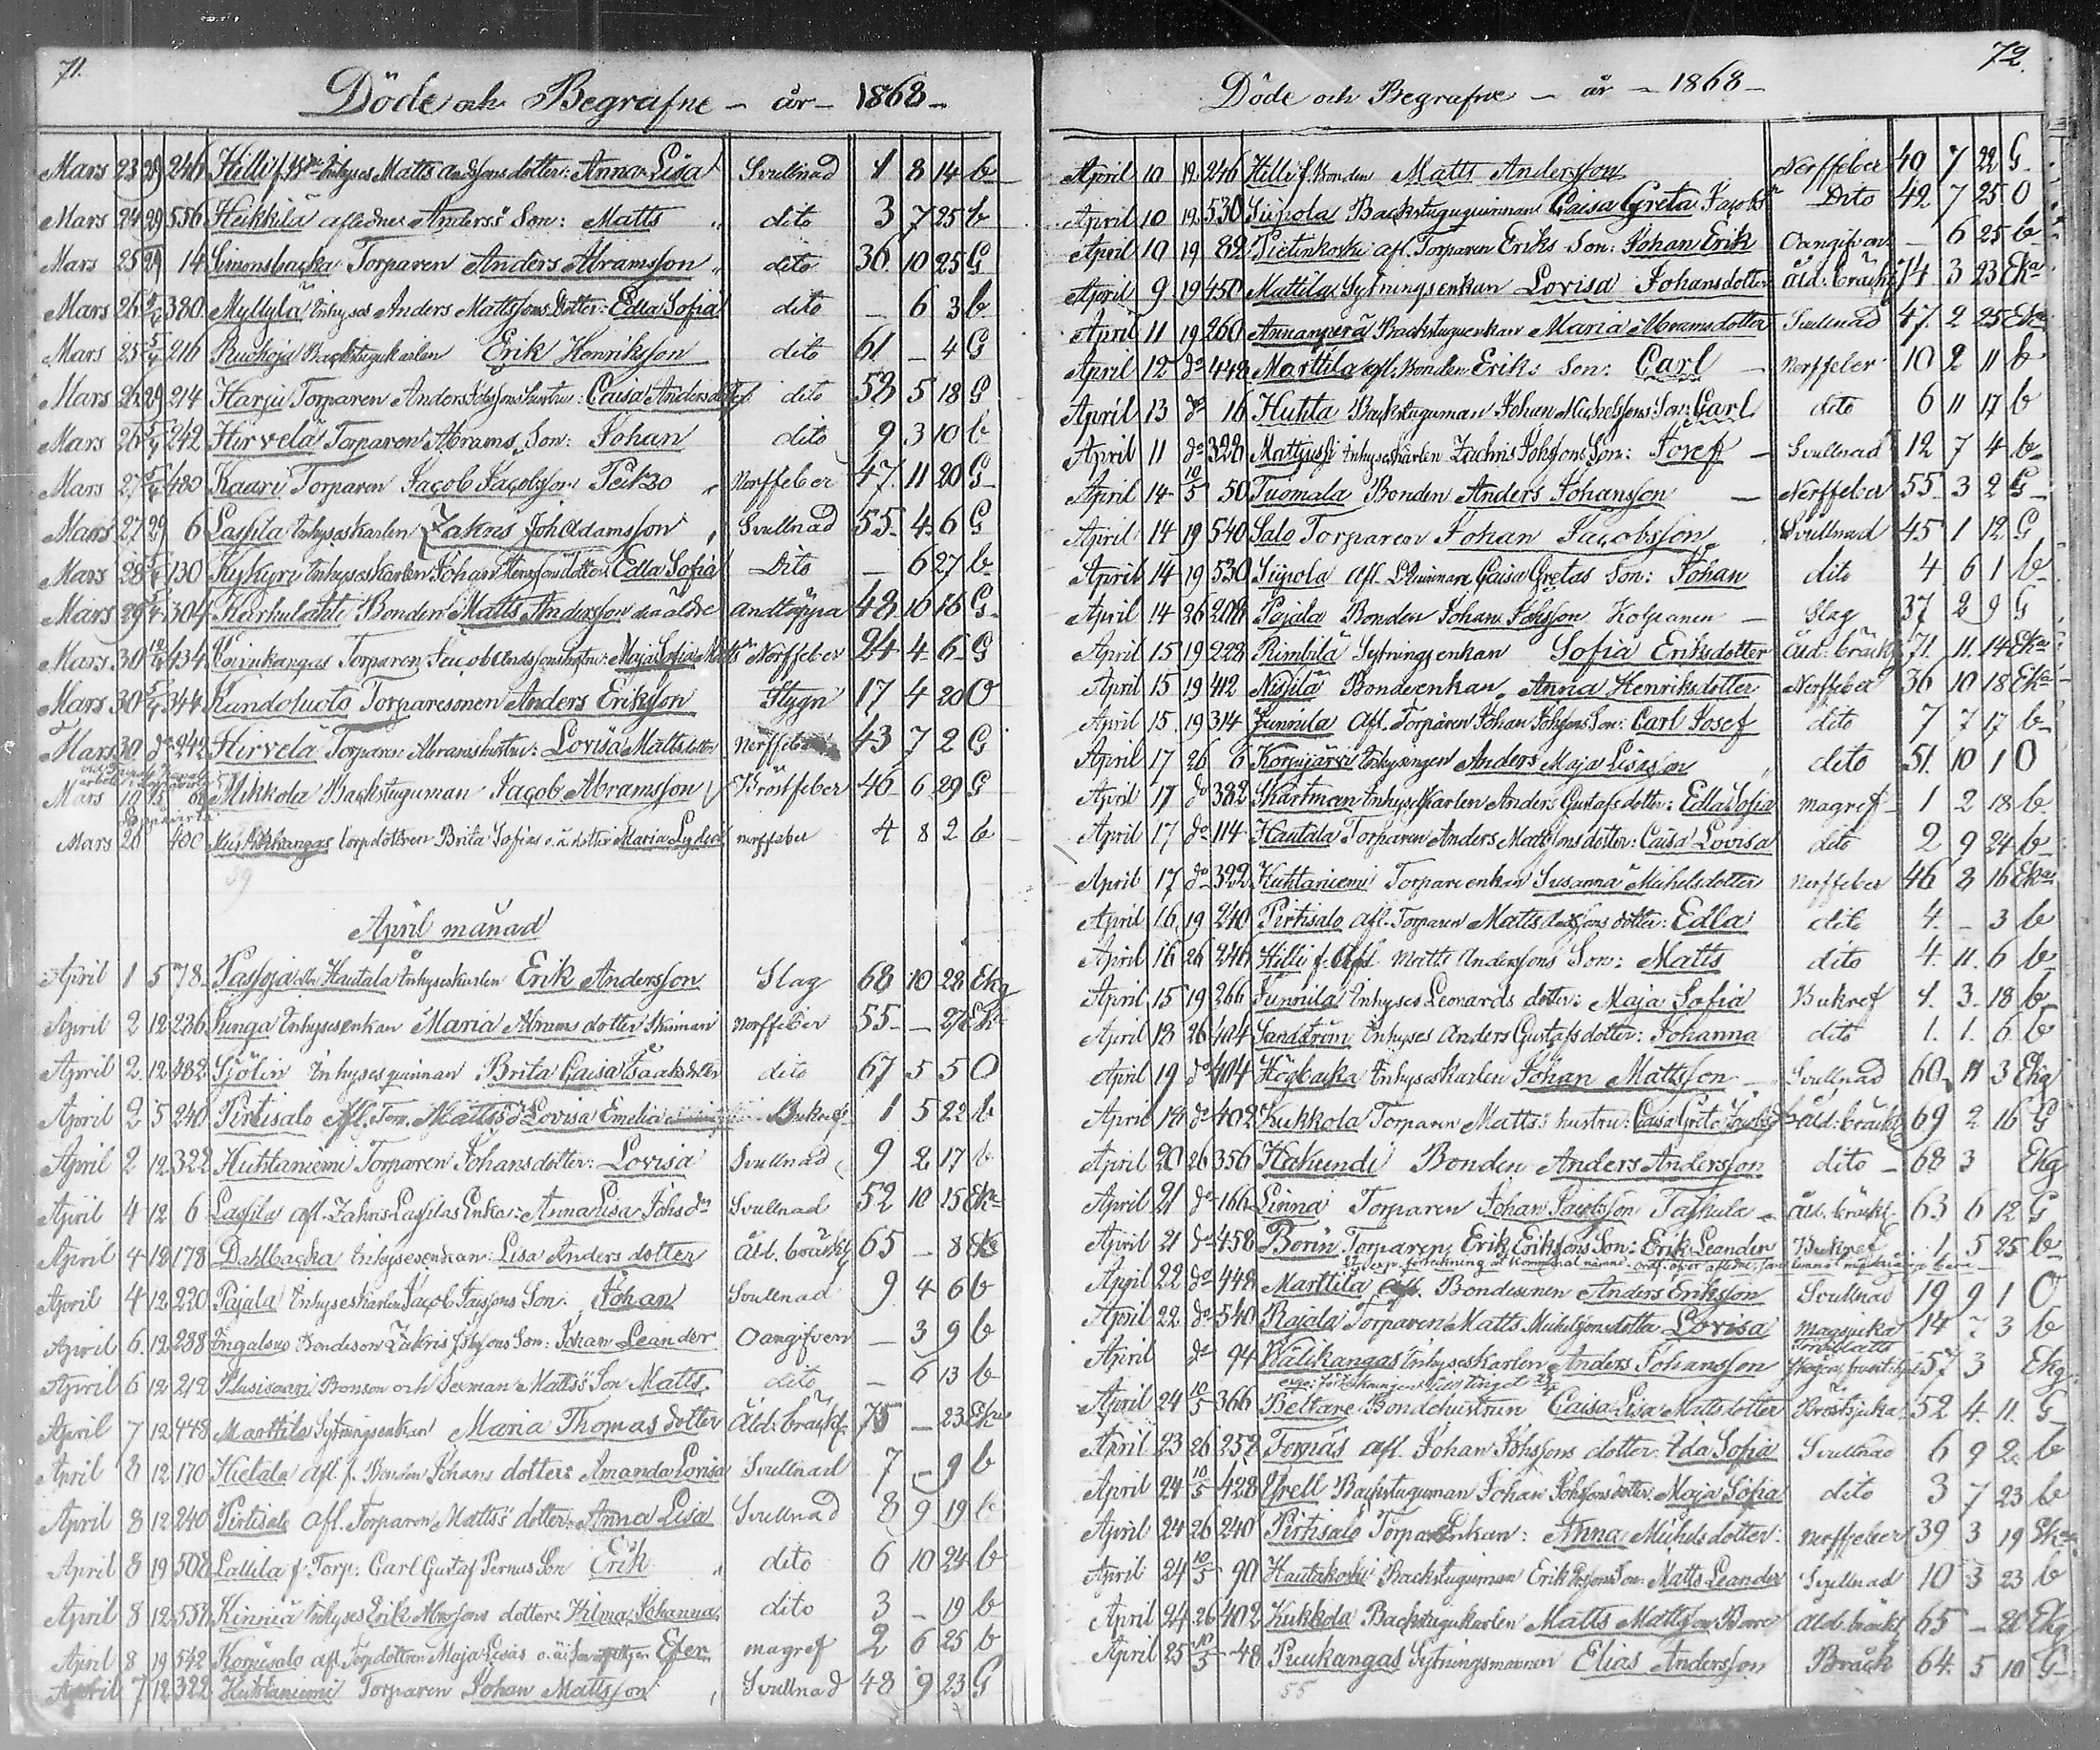 71.
Döde och Begrafne – år – 1868 –
Mars 23 29 246 Hilli f. Inhyses Matts Andssons dotter: Anna Lisa Svullnad 1 8 14 b
Mars 24 29 556 Heikkilä aflednes Anderss Son: Matts dito 3 7 25 b
Mars 25 29 14 Simonsbacka Torparen Anders Abramsson dito 36 10 25 G
Mars 26 5/4 380 Myllylä Inhyses Anders Mattssons dotter: Edla Sofia dito – 6 3 b
Mars 25 5/4 216 Ruohoja Backstugukarlen Erik Henriksson dito 61 – 4 G
Mars 26 29 214 Harju Torparen Anders hustru: Caisa Andersdotter dito 58 5 18 G
Mars 26 5/4 242 Hirvelä Torparen Abrams Son: Johan dito 9 3 10 b
Mars 27 5/4 480 Kaari Torparen Jacob Jacobsson Nerffeber 47 11 20 G
Mars 27 29 6 Lassila Inhyseskarlen Zakris Joh Adamsson Svullnad 55 4 6 G
Mars 28 5/4 130 Kykyri Inhyseskarlen Johan Henrssons dotter: Edla Sofia Dito – 6 27 b
Mars 29 5/4 304 Karhulahti Bonden Matts Andersson den äldre andtäppa 48 10 16 G
Mars 30 12/4 434 Torparen Jacob Andssons hustru: Maja Sofia Matts Nerffeber 24 4 6 G
Mars 30 5/4 344 Kandoluoto Torparesonen Anders Eriksson Stygn 17 4 20 O
Mars 30 do 242 Hirvelä Torparen Abrams hustru: Lovisa Mattsdotter nerffeber 43 7 2 G
Mars 10 15 Mikkola Backstuguman Jacob Abramsson Bröstfeber 46 6 29 G
Mars 28 400 torpdottren Brita Sofias o.ä. dotter Maria Lydia nerffeber 4 8 2 b
59
April månad
April 1 5 78 Passoja eller Hautala Inhyseskarlen Erik Andersson Slag 68 10 28 Ekg
April 2 12 236 Inhysesenkan Maria Abrams dotter Nerffeber 55 – 27 Eka
April 2 12 482 Sjölin Inhyses quinnan Brita Caisa Isaaksdotter dito 67 5 5 O
April 2 5 240 Pirtisalo Afl. Torp. Mattss dr Lovisa Emelia Bukref 1 5 22 b
April 2 12 322 Huhtaniemi Torparen Johans dotter: Lovisa Svullnad 9 2 17 b
April 4 12 6 Lassila afl. Zakris Lassilas Enka: Anna Lisa Johsdr Svullnad 52 10 15 Eka
April 4 12 178 Dahlbacka Inhysesenkan: Lisa Anders dotter Åld. bräckl. 65 – 8 Eka
April 4 12 220 Pajala Inhyseskarlen Jacob Son: Johan Svullnad 9 4 6 b
April 6 12 288 Ingalsuo Bondeson Zakris Johssons Son: Johan Leander Oangifven – 3 9 b
April 6 12 212 Plusisaari Bonson och Seeman Mattss Son Matts dito – 6 13 b
April 7 12 448 Marttila Sytningsenkan Maria Thomas dotter Åld. bräckl. 75 – 23 Eka
April 8 12 170 Hietala afl. f. Bonden Johans dotter: Amanda Lovisa Svullnad 7 – 9 b
April 8 12 240 Pirtisalo Afl. Torparen Mattss dotter: Anna Lisa Svullnad 8 9 19 b
April 8 19 508 Lallila f Torp: Carl Gustaf Son Erik dito 6 10 24 b
April 8 12 554 Inhyses Erik dotter: Hilma Johanna dito 3 – 19 b
April 8 19 542 afl. Torpdottren Maja Lisas o.ä. magref 2 6 25 b
April 7 12 322 Huhtaniemi Torparen Johan Mattsson Svullnad 48 9 23 G
72.
Döde och Begrafne – år – 1868 –
April 10 12 246 Hilli f. Bonden Matts Andersson Nerffeber 40 7 22 G
April 10 12 530 Siipola Backstuguquinnan Caisa Greta Jacobsdr Dito 42 7 25 O
April 10 19 82 Pietinkoski afl. Torparen Eriks Son: Johan Erik Oangifven – 6 25 b
April 9 19 450 Mattila Sytningsenkan Lovisa Johansdotter åld: bräckl 74 3 23 Eka
April 11 19 260 Annanperä Backstuguenkan Maria Abramsdotter Svullnad 47 2 25 Eka
April 12 do 448 Marttila afl. Bonden Eriks Son: Carl – Nerffeber 10 2 11 b
April 13 do 16 Huhta Backstuguman Johan Michelssons Son: Carl dito 6 11 17 b
April 11 do 328 Inhyseskarlen Zachris Johssons Son: Josef – Svullnad 12 7 4 b
April 14 10/5 50 Tuomala Bonden Anders Johansson – Nerffeber 55 3 2 G
April 14 19 540 Salo Torparen Johan Jacobsson Svullnad 45 1 12 G
April 14 19 530 Siipola afl. Quinnan Caisa Gretas Son: Johan dito 4 6 1 b
April 14 26 208 Pajala Bonden Johan Johsson – Slag 37 2 9 G
April 15 19 228 Rimbilä Sytningsenkan Sofia Eriksdotter åld: bräckl 71 11 14 Eka
April 15 19 412 Nissilä Bondeenkan Anna Henriksdotter Nerffeber 36 10 18 Eka
April 15 19 314 Junnula Afl. Torparen Johan Johssons Son: Carl Josef dito 7 7 17 b
April 17 26 6 Korpijärvi Inhysingen Anders Maja Lisasson dito 51 10 1 O
April 17 do 382 Skartman Inhyseskarlen Anders Gustafs dotter: Edla Sofia magref 1 2 18 b
April 17 do 114 Hautala Torparen Anders Mattssons dotter: Caisa Lovisa dito 2 9 24 b
April 17 do 322 Huhtaniemi Torpareenkan Susanna Michelsdotter Nerffeber 46 8 16 Eka
April 16 19 240 Pirtisalo Afl. Torparen Matts dotter: Edla dito 4 – 3 b
April 16 26 246 Hilli f. Afl. Matts Anderssons Son: Matts dito 4 11 6 b
April 15 19 266 Junnila Inhyses Leonards dotter: Maja Sofia Bukref 4 3 18 b
April 18 26 404 Sandström Inhyses Anders Gustafs dotter: Johanna dito 1 1 6 b
April 19 do 404 Högbacka Inhyseskarlen Johan Mattsson – Svullnad 60 11 3 Ekg
April 19 do 402 Kukkola Torparen Matts's hustru: Caisa Greta åld: bräckl 69 2 16 G
April 20 26 356 Hakundi Bonden Anders Andersson dito – 68 3 Ekg
April 21 do 166 Linna Torparen Johan Åld. bräckl. 63 6 12 G
April 21 do 458 Borin Torparen Erik Erikssons Son: Erik Leander Bukref 1 5 25 b
April 22 do 448 Marttila Afl. Bondesonen Anders Eriksson Svullnad 19 9 1 O
April 22 do 540 Rajala Torparen Matts Michelssons dotter Lovisa magsjuka 14 7 3 b
April do 94 Välikangas Inhyseskarlen Anders Johansson 57 3 Ekg
April 24 10/5 366 Beltare Bondehustrun Caisa Lisa Mattsdotter Bröstsjuka 52 4 11 G
April 23 26 252 Tornäs afl. Johan Johssons dotter: Ida Sofia Svullnad 6 9 2 b
April 24 10/5 428 Backstuguman Johan Johssons dotter: Maja Sofia dito 3 7 23 b
April 24 26 240 Pirtisalo Torparenkan: Anna Michels dotter: Nerffeber 39 3 19 Eka
April 24 10/5 90 Hautakoski Backstuguman Erik Son: Matts Leander Svullnad 10 3 23 b
April 24 26 402 Kukkola Backstugukarlen Matts Mattsson Åld. bräckl 65 – 21 Ekg
April 25 10/5 48 Puukangas Sytningsmannen Elias Andersson Bråck 64 5 10 G
55